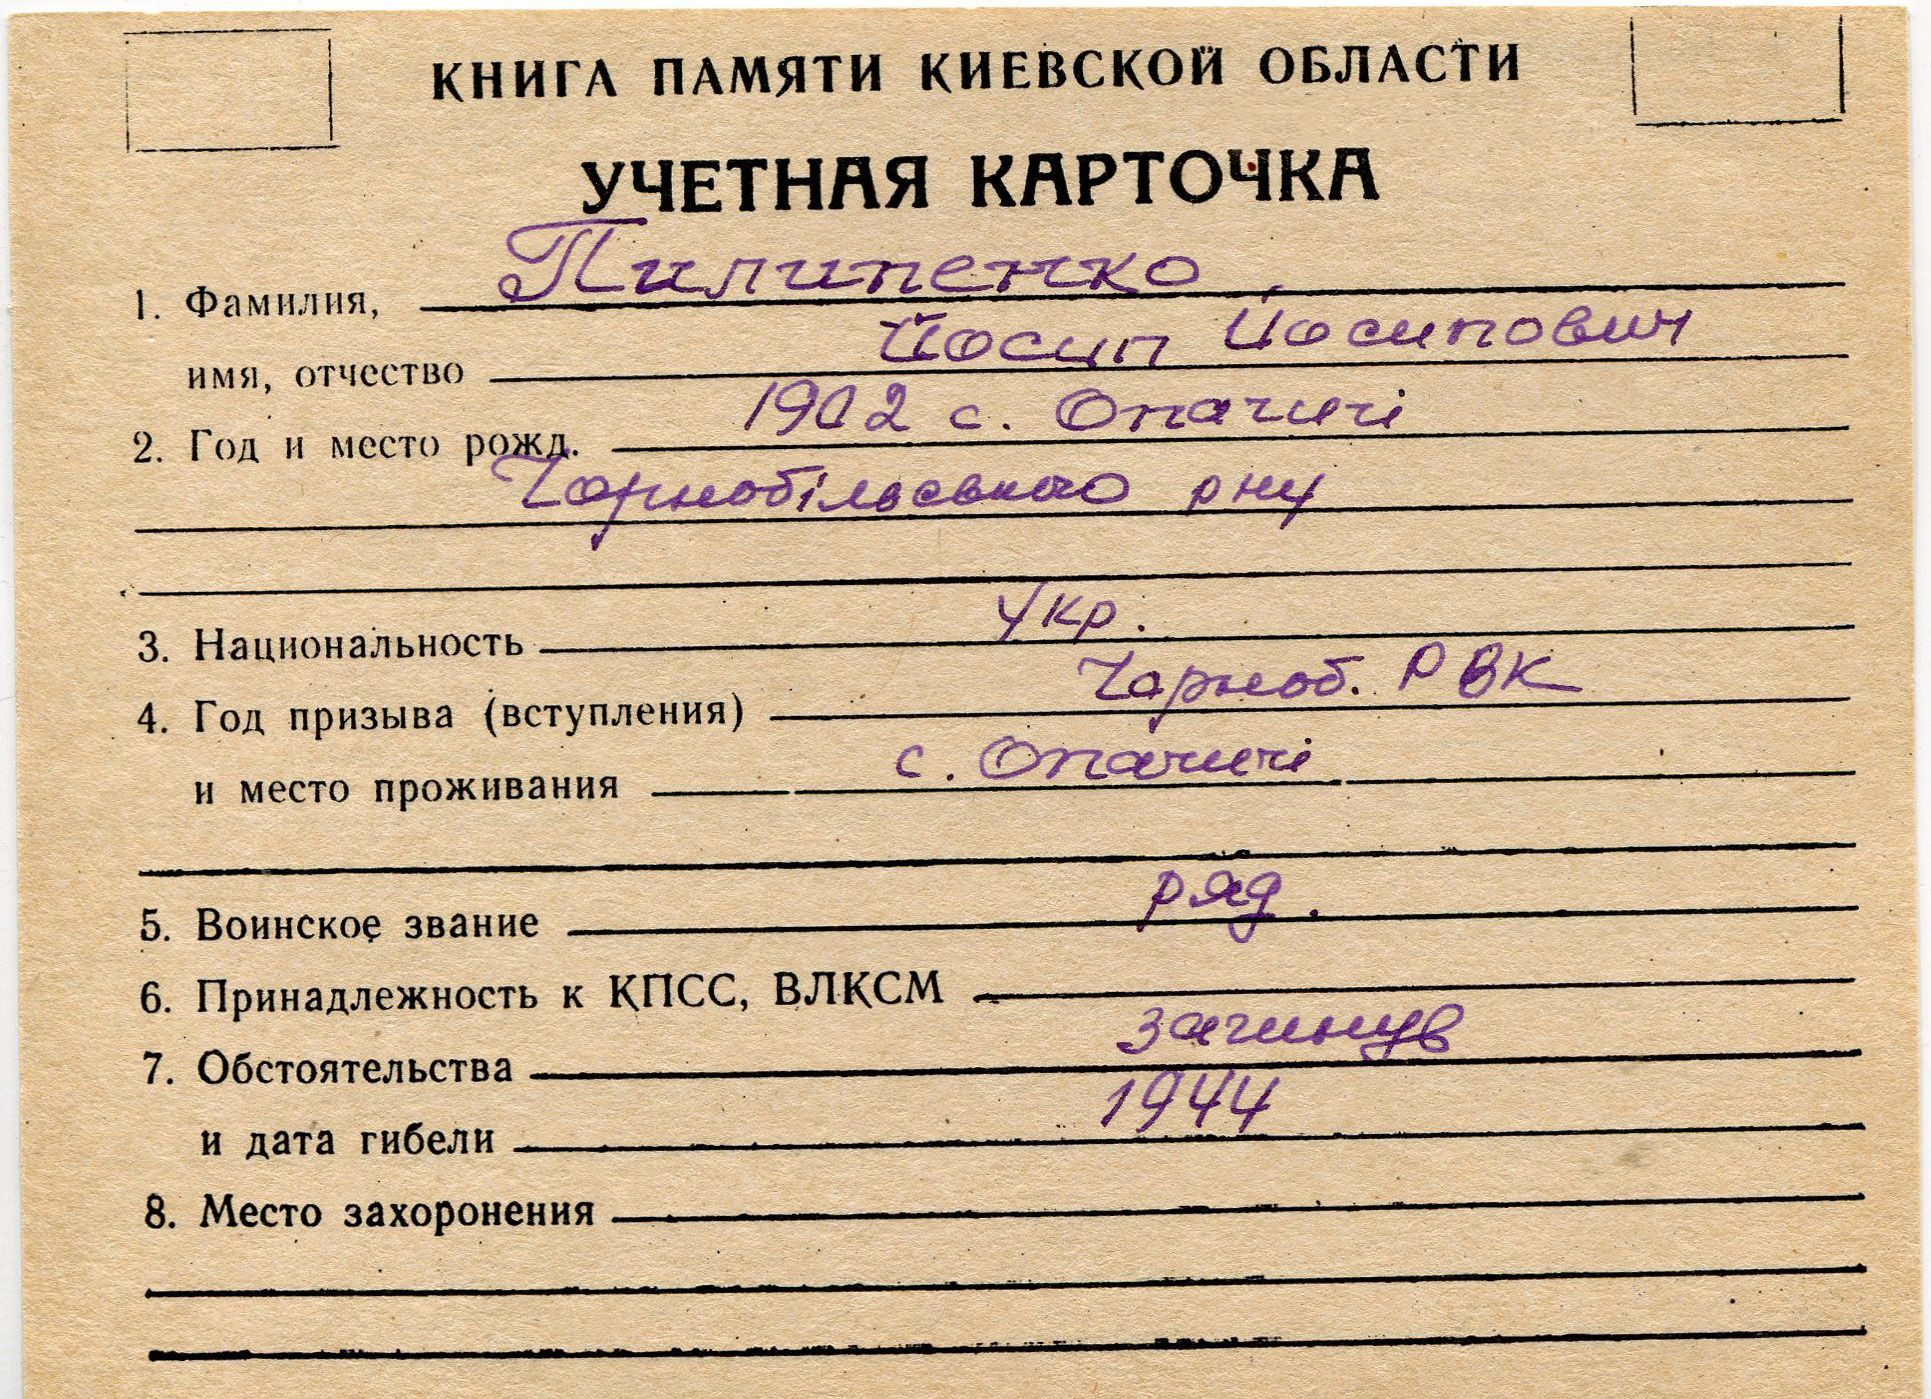 КНИГА ПАМЯТИ КИЕВСКОЙ ОБЛАСТИ
УЧЕТНАЯ КАРТОЧКА
1. Фамилия, Пилипенко
имя, отчество Йосип Йосипович
2. Год и место рожд. 1902 с. Опачичі
Чорнобільського рну
3. Национальность Укр.
4. Год призыва (вступления) Чорноб. РВК
и место проживания с. Опачичі
5. Воинское звание ряд.
6. Принадлежность к КПСС, ВЛКСМ
7. Обстоятельства загинув
и дата гибели 1944
8. Место захоронения